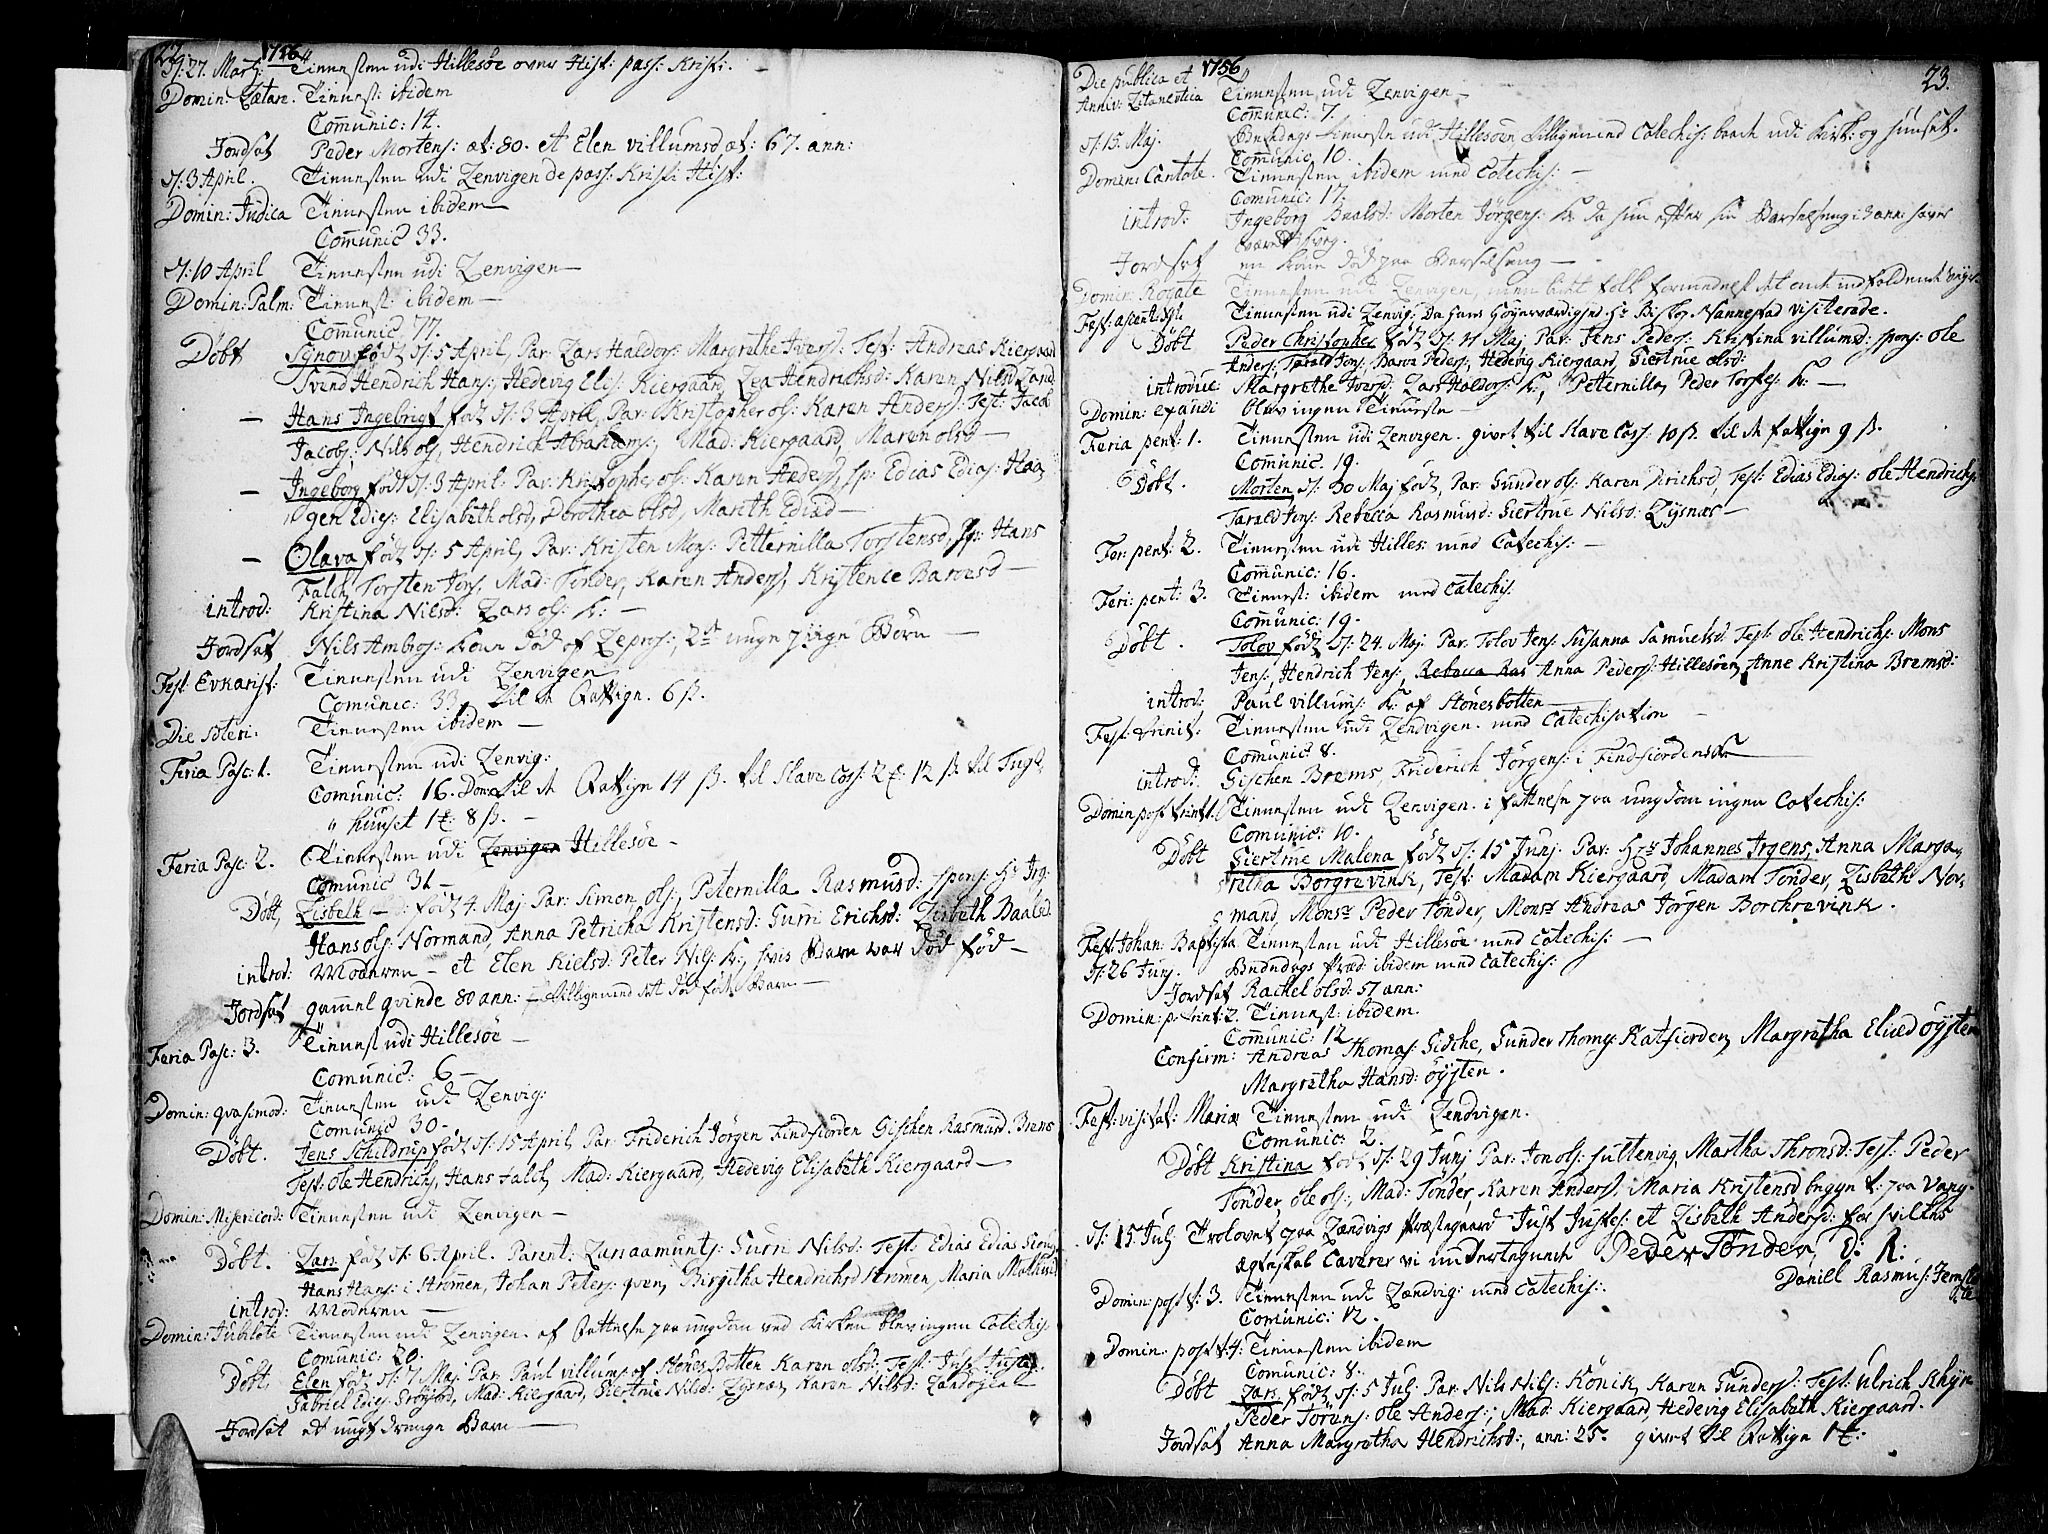 22. 1756
d: 27. Martj. Tienesten udi Hillesöe over Hist: pass: Kristi.
Domin: Lætare. Tienest: ibidem
Comunic: 14.
Jordsat Peder Mortens: æt: 80. et Elen Villumsd æt: 67. ann:
d: 3 April. Tienesten udi Lenvigen de pass: Kristi Hist:
Domin: Judica Tienesten ibidem
Comunic 33.
d: 10 April Tienesten udi Lenvigen
Domin: Palm: Tienest: ibidem
Comunic 77.
Döbt Synov födt d: 5 April, Par: Lars Haldors: Margrethe Ivers: Test: Andreas Kiergaard
Svend Hendrich Hans: Hedevig Elis: Kiergaard, Lea Hendrichsd: Karen Nilsd Land:
Hans Ingebrigt födt d: 3 April, Par: Kristopher ols: Karen Anders: Test: Jacob
Jacobs: Nils ols, Hendrich Abrahams:, Mad: Kiergaard, Maren olsd
Ingeborg födt d: 3 April: Par: Kristopher ols: Karen Anders, sp: Edias Edias: Haa
gen Edies: Elisabeth olsd, Dorothea olsd, Marith Ediæd
Olava födt d: 5 April, Par: Kristen Mons: Petternilla Torstensd, sp: Hans
Falch, Torsten Jors, Mad: Tönder, Karen Anders, Kristence Baronsd
introd: Kristina Nilsd: Lars ols: K:
Jordsat Nils Ambros: Kone död af Lepros:, 2de unge Börn
Fest: Evkarist: Tienesten udi Lenvigen
Comunic: 33. Til de Fattige. 6 ß.
Die soteri: Tienesten ibidem
Feria Pasc: 1. Tienesten udi Lenvig:
Comunic: 16. Til de Fattige 14 ß. til Slave Cass: 12 ß. til Tugt
huuset 8 ß.
Feria Pasc: 2. Tienesten udi Lenvigen Hillesöe
Comunic 31
Döbt, Lisbeth födt 4. Maj Par: Simon ols:, Peternilla Rasmusd:
Hans ols: Normand, Anna Petricha Kristensd: Gurri Erichsd: Lisbeth Baalsd
introd: Moderen et Elen Kielsd: Peter Nils: K:, hvis Barn var död född
Jordsat gammel qvinde 80 ann: Barn
Feria Pasc: 3. Tienest udi Hillesöe
Comunic: 6
Domin: qvasimod: Tienesten udi Lenvig:
Comunic 30
Döbt. Jens Schildrup födt d: 15 April, Par: Friderich Jörgen Findfiorden Gischen Rasmusd Brems
Test: ole Hendrich, Hans Falch, Mad: Kiergaard, Hedevig Elisabeth Kiergaard
Domin: Misericord: Tienesten udi Lenvigen
Döbt. Lars födt d: 6. April. Parent: Gurri Nilsd: Test: Edias Edias
Hans Hans: i Strömen, Johan Peters: qven, Birgitha Hendrichsd Strömen, Maria
introd: Moderen
Domin: Jubilate Tienesten udi Lenvigen. af ungdom ved Kirken blev ingen Catechis:
Comunic: 20.
Döbt, Elen födt d: 7 Maj. Par: Paul Villums af Stönes Botten Karen olsd: Test: Just Justes:
Gabriel Edies: Mad: Kiergaard, Giertrue Nilsd: Lysnæs, Karen Nilsd:
Jordsat et ungt drenge Barn
1756 23.
Die publica et Anniv: Litanevtica Tienesten udi Lenvigen
Comunic: 7.
d: 15. Maj. Tieneste udi Hillesöen Catechis: baade udi Kirk: og huuset.
Comunic 10.
Domin: Cantate. Tienesten ibidem med Catechis:
Comunic: 17.
introd: Ingeborg Baalsd: Morten Jörgens: K: da hun efter sin Barselseng
været svag.
Jordsat en Kone död paa Barselseng
Domin: Rogate Tienesten udi Lenvigen,
Fest: ascent: Tienesten udi Lenvig: Da Hans Höyærværdighed Hr Biskop Nannestad visiterede.
Döbt Peder Christopher födt d: 11 Maj Par: Jens Peders: Kristina Villumsd: spons: Ole
Anders: Tarald Jens: Peders: Hedevig Kiergaard, Giertrue olsd:
introduc Margrethe Iversd: Lars Haldors: K:, Peternilla, Peder Torstes: K:
Domin: exaudi blev ingen Tieneste
Feria pent: 1. Tienesten udi Lenvigen. givet til Slave Cass: 10 ß. til de fattige 9 ß.
Comunic. 19.
Döbt. Morten d: 30 Maj födt, Par: Gunder ols: Karen Dirichsd, Test: Edias Edias: ole Hendrichs:
Tarald Jens: Rebecca Rasmusd: Giertrue Nilsd: Lysnæs
Fer: pent: 2. Tienesten udi Hilles: med Catechis:
Comunic: 16.
Feri: pent: 3. Tienest: ibidem med Catechis:
Comunic: 19.
Döbt. Tolov födt d: 24. Maj Par: Tolov Jens: Susanna Samuelsd: Test: ole Hendrichs: Mons
Jens:, Hendrich Jens:, Rebecca Ras Anna Peders: Hillesöen, Anne Kristina Bremsd:
introd: Paul Villums: K: af Stönesbotten
Fest: Trinit: Tienesten udi Lendvigen. med Catechisation
Comunic: 8.
introd: Gischen Brems, Friderich Jörgens: i Findfiordens K:
Domin post trint 1. Tienesten udi Lenvigen. i fattelse paa ungdom ingen Catechis:
Comunic: 10.
Döbt Giertrue Malena födt d: 15 Junj. Par: Hrr Johannes Irgens, Anna Marga
retha Borgrevink, Test: Madam Kiergaard, Madam Tönder, Lisbeth Nor
mand, Monsr Peder Tönder, Monsr Andreas Jörgen Borchrevink.
Fest: Johan: Baptista Tienesten udi Hillesöe med Catechis:
d: 26 Junj. Præd: ibidem med Catechis:
Jordsat Rachel olsd: 57 ann:
Domin: p: trint: 2. Tienest: ibidem.
Comunic: 12
Confirm: Andreas Thomas: Gidche, Gunder Thoms: Katfiorden, Margretha Eliæd öysten
Margretha Hansd: öysten.
Fest: visitat: Mariæ Tienesten udi Lendvigen.
Comunic: 2.
Döbt Kristina födt d: 29 Junj Par: Jon ols: Martha Thronsd: Test: Peder
Tönder, ole ols:, Mad: Tönder, Karen Anders, Maria Kristensd paa Vang.
d: 15 Julj Trolovet paa Lændvigs Præstegaard Just Justes: et Lisbeth Andersd: for hvilkes
Caverer vi underteignede Peder Tönder, D: R:
Daniel Rasmus:
Domin: post t: 3. Tienesten udi Lændvig: med Catechis:
Comunic: 12.
Domin: post t: 4: Tienesten ibidem
Comunic: 8.
Döbt Lars födt d: 5 Julj Par: Nils Nils: Könik, Karen Gunders: Test: Ulrich
Peder Törens: ole Anders:; Mad: Kiergaard, Hedevig Elisabeth Kiergaard.
Jordsat Anna Margretha Hendrichsd:, ann: 25. givet til Fattige